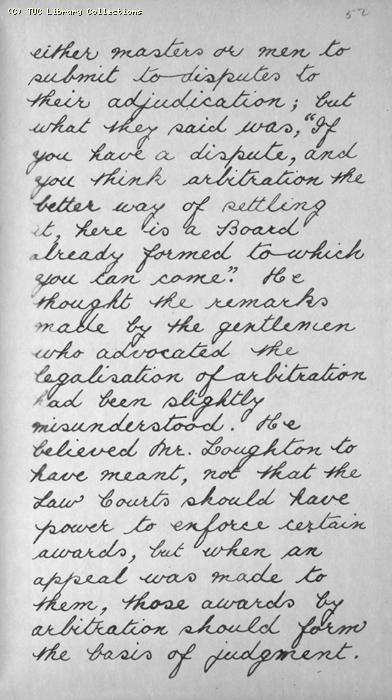 (C) TUC Library Collections
52
either masters or men to
submit to disputes to
their adjudication; but
what they said was, "If
you have a dispute, and
you think arbitration the
better way of settling
it, here is a Board
already formed to which
you can come". He
thought the remarks
made by the gentlemen
who advocated the
legalisation of arbitration
had been slightly
misunderstood. He
believed Mr. Loughton to
have meant, not that the
Law Courts should have
power to enforce certain
awards, but when an
appeal was made to
them, those awards by
arbitration should form
the basis of judgment.